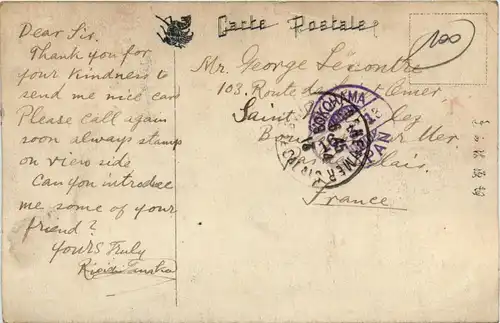 Carte Postale
100
Dear Sir.
Thank you for
your kindness to
send me nice card
Please call again
soon always stamps
on view side
Can you introduce
me some of your
friend?
Yours Truly
Mr. George Lecontre
103. Route de Omer
Saint
Bou Mer
Pas Calais.
France
YOKOHAMA
JAPAN